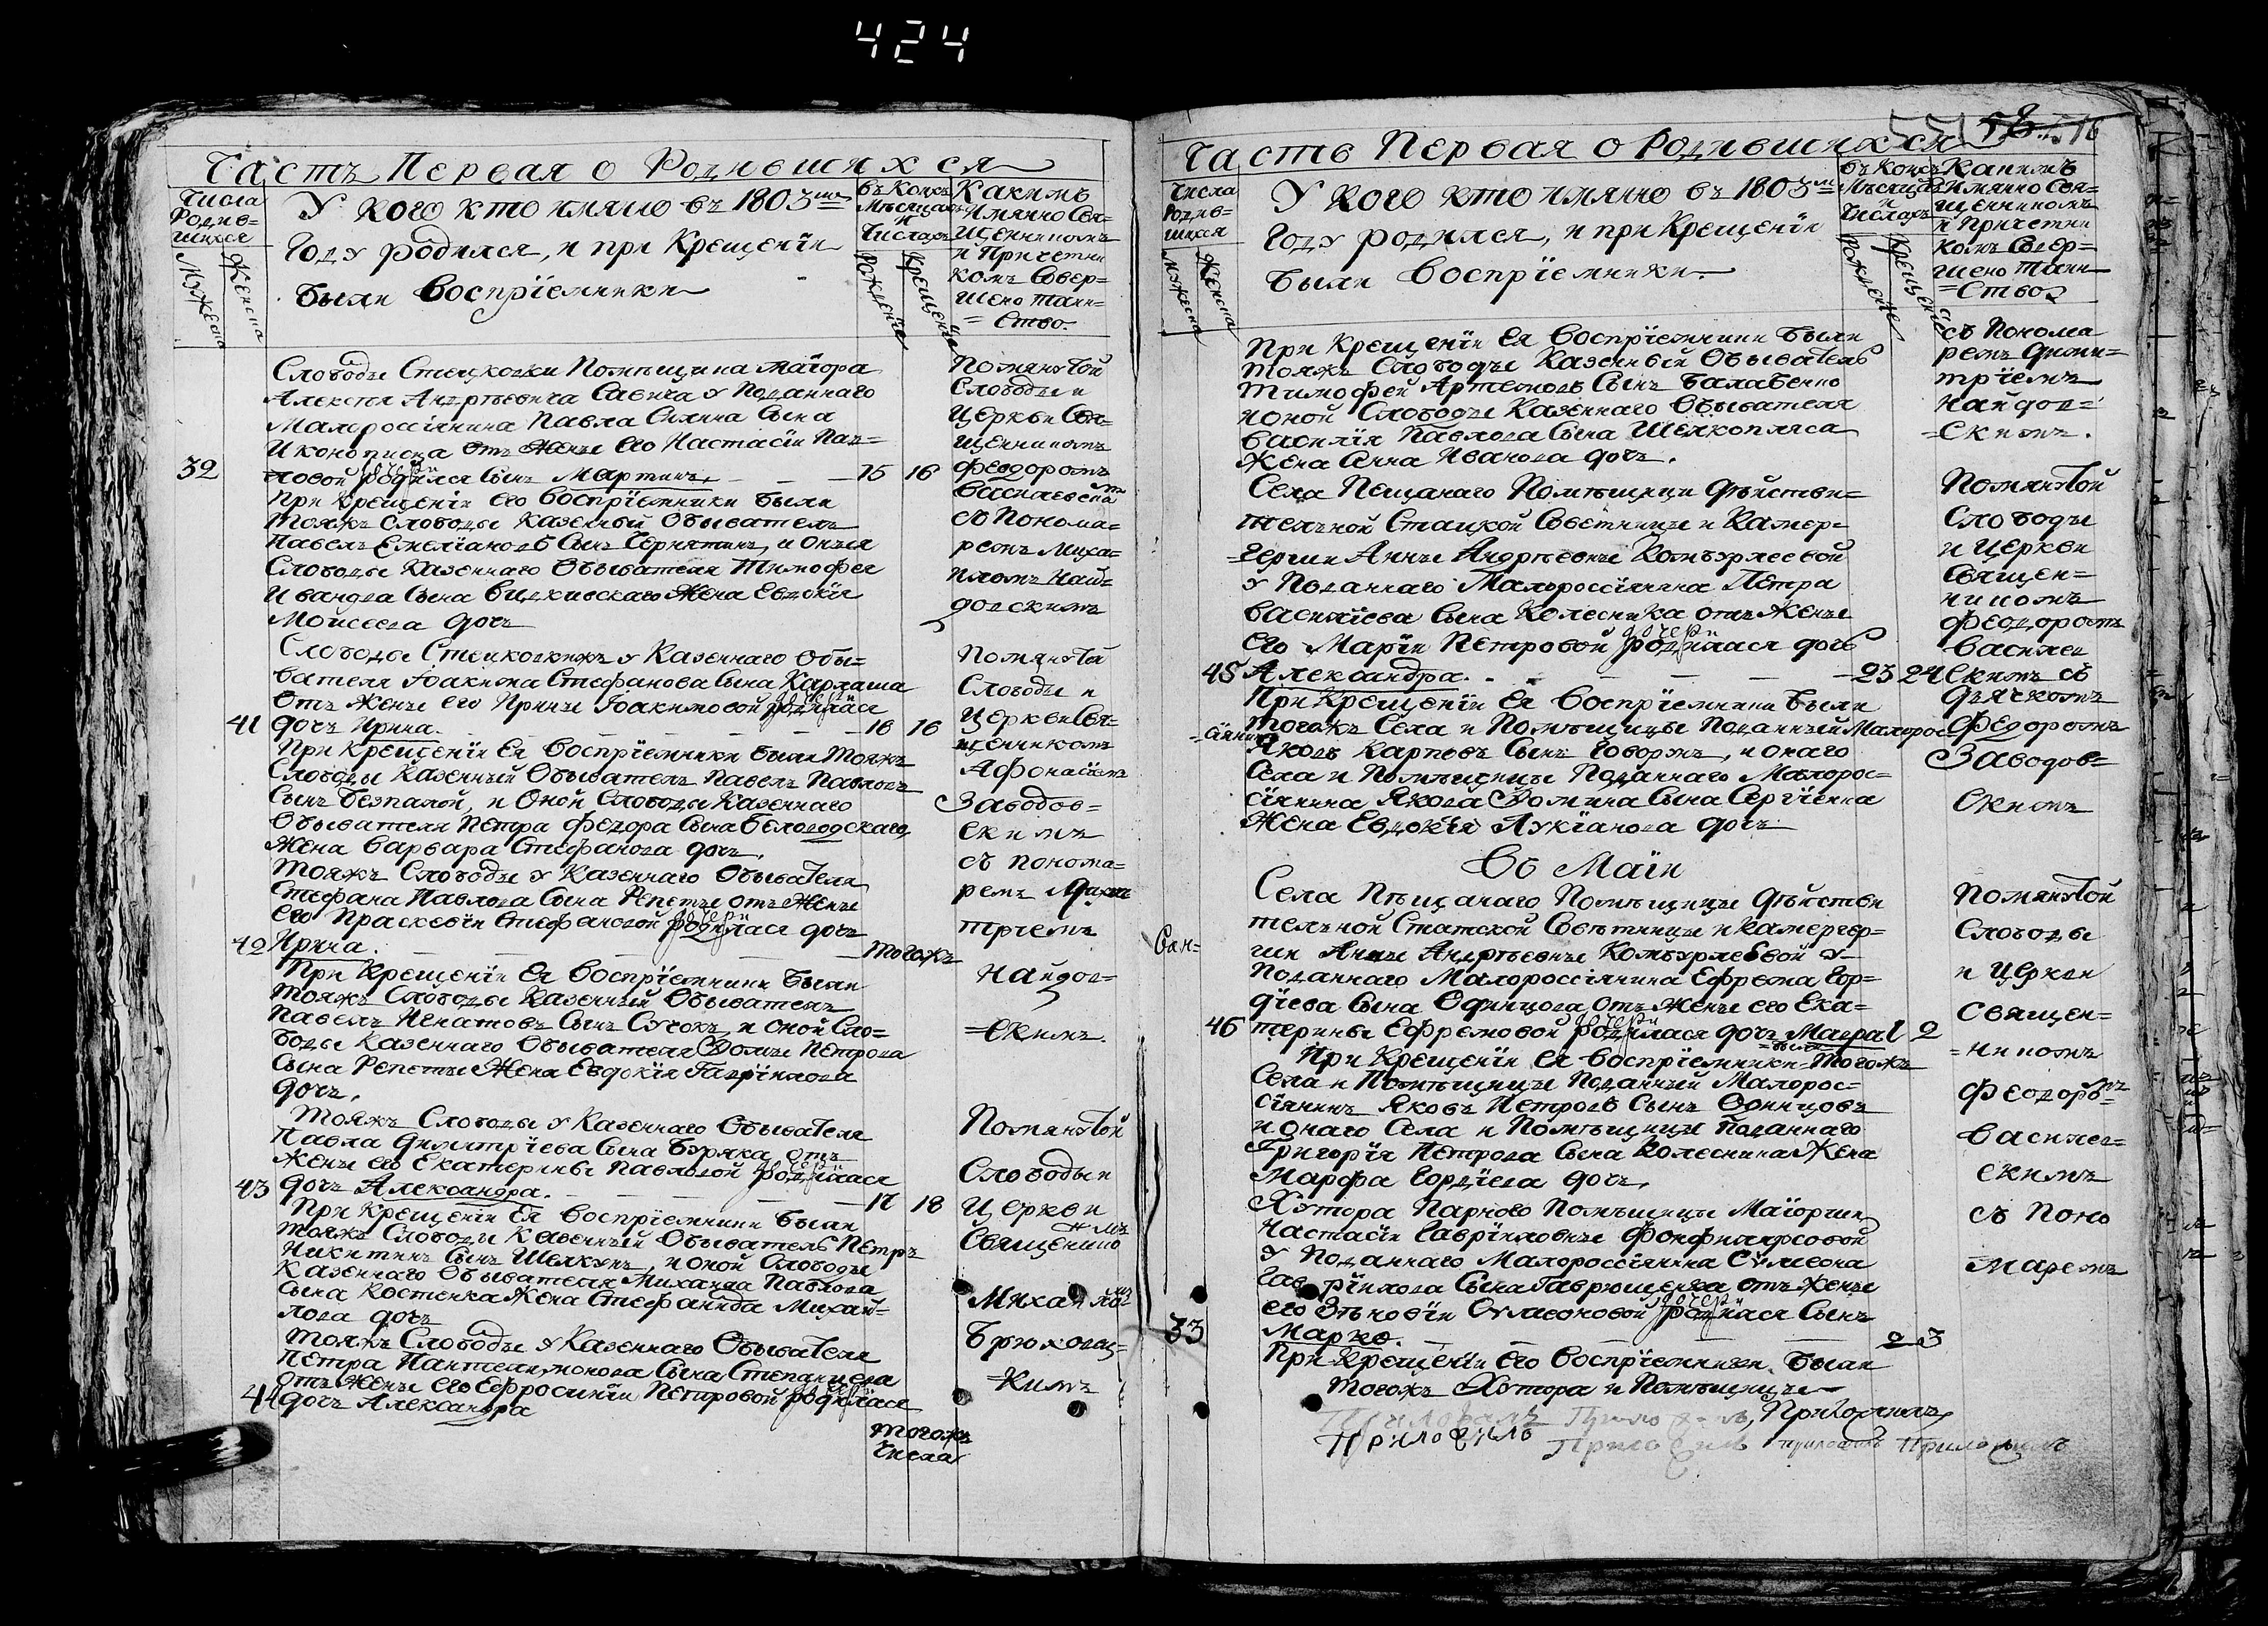 424
Часть Первая о Родившихся
Числа Родив=
шихся
Мужеска
Женска
У кого кто имянно въ 1803мъ
Году родился, и при Крещенïи
были Воспрïемники
въ Коихъ
Мѣсяцахъ
и
Числахъ
Рожденïе
Крещенïе
Какимъ
Имянно Свя=
щенникомъ
и Причетни
комъ Совер=
шено таин=
=ство.
Слободы Стецковки Помѣщика Маïора
Алексѣя Андрѣевича Савича у Поданнаго
Малороссïянина Павла Силина Сына
Иконописца отъ Жены его Настасïи Пав=
32 ловой родился Сынъ Мартинъ. 15 16
При Крещенïи его воспрïемники были
тояжъ Слободы Казенный Обыватель
Павелъ Емелïановъ Сынъ Чернятинъ, и оныя
Слободы Казеннаго Обывателя Тимофея
Иванова Сына Жена Евдокïя
Моисеева дочь
Помянутой
Слободы и
Церкви Свя=
щенникомъ
Феодоромъ
Василевскимъ
съ Понома=
ремъ Миха=
иломъ Най=
довскимъ
Слободы Стецковкижъ у Казеннаго Обы=
вателя Iоакима Стефанова Сына Карпаша
отъ Жены его Ирины Iоакимовой родилася
41 дочь Ирина. 16 16
При Крещенïи Ея Воспрïемники были Тояжъ
Слободы Казенный Обыватель Павелъ Павловъ
Сынъ Безпалой, и Оной Слободы Казеннаго
Обывателя Петра Федора Сына Беловодскаго
Жена Варвара Стефанова дочь.
Помянутой
Слободы и
Церкви Свя=
щенникомъ
Афонасïемъ
Заводов=
скимъ
съ понома=
ремъ
трïемъ
Найдов=
=скимъ.
Тояжъ Слободы у Казеннаго Обывателя
Стефана Павлова Сына Репеты отъ Жены
его Праскевïи Стефановой родилася дочь
42 Ирина. Тогожъ
При Крещенïи Ея Воспрïемники были
Тояжъ Слободы Казенный Обыватель
Павелъ Игнатовъ Сынъ Сучокъ, и оной Сло=
боды Казеннаго Обывателя Фомы Петрова
Сына Репеты Жена Евдокïя Гаврïилова
дочь.
Тояжъ Слободы у Казеннаго Обывателя
Павла Димитрïева Сына Буряка отъ
Жены его Екатерины Павловой родилася
43 дочь Александра. 17 18
При Крещенïи Ея Воспрïемники были
Тояжъ Слободы Казенный Обыватель Петръ
Никитинъ Сынъ Шелкунъ, и оной Слободы
Казеннаго Обывателя Михаила Павлова
Сына Костенка Жена Стефанида Михай=
лова дочь
Помянутой
Слободы и
Церкви
Священникомъ
Михаиломъ
Брюховец=
кимъ
Тояжъ Слободы у Казеннаго Обывателя
Петра Пантелимонова Сына Степанцева
отъ Жены его Ефросинïи Петровой родилася
44 дочь Александра
Тогожъ
Числа
Часть Первая о Родившихся
Числа
Родив=
шихся
Мужеска
Женска
У кого кто имянно въ 1803м
Году родился, и при Крещенïи
были Воспрïемники.
въ Коихъ
Мѣсяцахъ
и
Числахъ
Рожденïе
Крещенïе
Какимъ
Имянно Свя=
щенникомъ
и Причетни
комъ Совер=
шено таин
=Ство
При Крещенïи Ея Воспрïемники были
тояжъ Слободы Казенный Обыватель
Тимофей Артемовъ Сынъ Балабенко
и оной Слободы Казеннаго Обывателя
Василïя Павлова Сына Шелкопляса
Жена Анна Иванова дочь.
съ Понома
ремъ Дими=
трïемъ
Найдов=
=скимъ.
Села Пещанаго Помѣщици Дѣйстви=
тельной Стацкой Совѣтницы и Камер=
=герши Анны Андрѣевны Комбурлеевой
у Поданнаго Малороссïянина Петра
Василïева Сына Колесника отъ Жены
его Марïи Петровой родилася дочь
45 Александра. 23 24
При Крещенïи Ея Воспрïемники были
Тогожъ Села и Помѣщицы Поданный Малорос=
=ïянинъ
Яковъ Карповъ Сынъ Говорунъ, и онаго
Села и Помѣщицы Поданнаго Малорос=
сïянина Якова Фомина Сына Сергïенка
Жена Евдокïя Лукïанова дочь
Помянутой
Слободы
и Церкви
Священ=
никомъ
Феодоромъ
Василев
скимъ съ
Дьячкомъ
Федоромъ
Заводов=
скимъ
Въ Маïи
Села Пѣщанаго Помѣщицы Дѣйстви
тельной Статской Совѣтницы и Камергер=
ши Анны Андрѣевны Комбурлеевой у
Поданнаго Малороссïянина Ефрема Гор=
дïева Сына Одинцова отъ Жены его Ека=
46 терины Ефремовой родилася дочь Мавра 1 2
При Крещенïи ея Воспрïемники были Тогожъ
Села и Помѣщицы Поданный Малорос=
сïянинъ Яковъ Петровъ Сынъ Одинцовъ
и онаго Села и Помѣщицы Поданнаго
Григорïя Петрова Сына Колесника Жена
Марфа Гордïева дочь.
Помянутой
Слободы
и Церкви
Священ=
=никомъ
Феодоромъ
Василев=
скимъ
съ Поно
маремъ
Хутора Парного Помѣщицы Маïорши
Настасïи Гаврïиловны
у Поданнаго Малороссïянина Сѵмеона
Гаврïилова Сына Гаврющенка отъ Жены
его Зѣновïи Сѵмеоновой родился Сынъ
33 Марко. 2 3
При Крещенïи его Воспрïемники были
тогожъ Хутора и Помѣщицы
Приложилъ